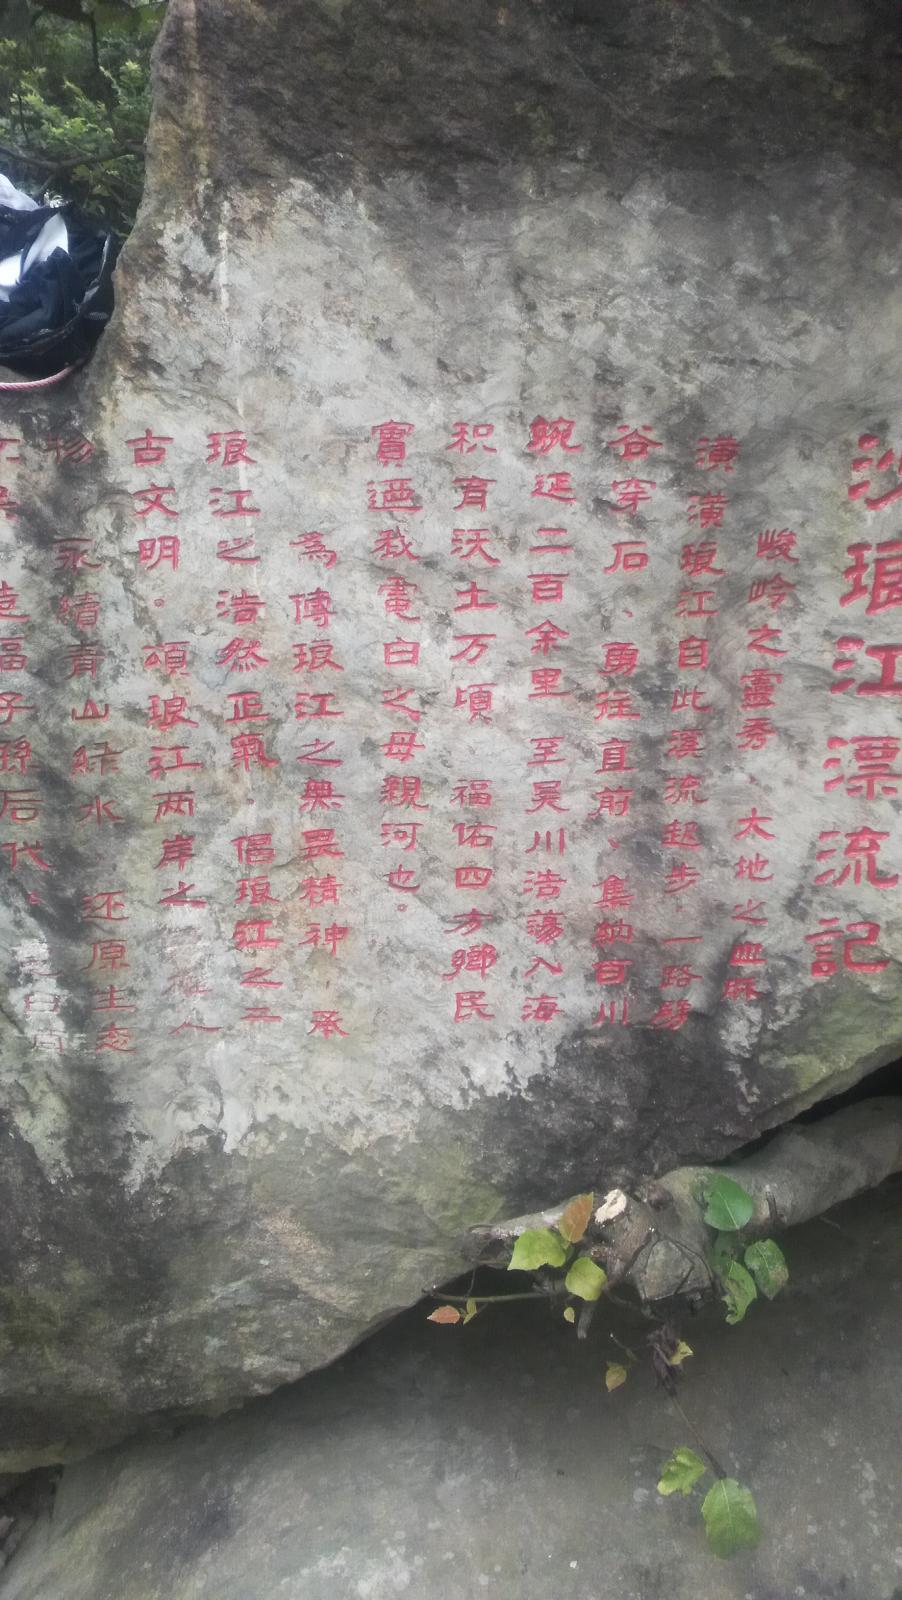 沙琅江漂流記
峻岭之靈秀、大地之血脉
潢潢琅江自此溪流起步.一路劈
谷穿石、勇往直前、集納百川
蜿延二百余里 至吴川浩蕩入海
积有沃土万頃 福佑四方鄉民
實迺我電白之母親河也。
為傳琅江之無畏精神.承
琅江之浩然正氣.倡琅江之
古文明。頌琅江两岸之人
物 永續青山緑水.还原生态
造福子孫后代。